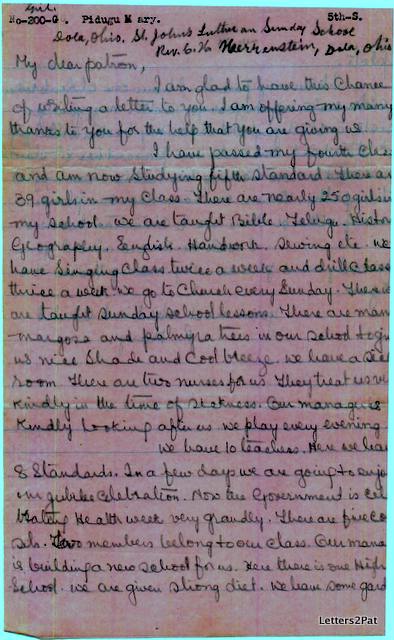 Girl.
No-200-G. Pidugu Mary. 5th-S.
Dola, Ohio. St. Johns Lutheran Sunday School
Rev. C. H. Herrenstein, Dola, Ohio
My dear patron,
I am glad to have this Chance
of writing a letter to you. I am offering my many
thanks to you for the help that you are giving us.
I have passed my fourth Class
and am now Studying fifth Standard. There are
39 girls in my Class. There are nearly 250 girls in
my school. we are taught Bible, Telugu, Histor
Geography, English, Handwork, Sewing etc. We
have Singing Class twice a week and drill Class
thrice a week. We go to Church every Sunday. There we
are taught Sunday School lessons. There are man
margosa and palmyra trees in our school to give
us nice Shade and Cool breeze. we have a sick
room. There are two nurses for us. They treat us ve
kindly in the time of Sickness. Our manager is
kindly looking after us. we play every evening
We have 10 teachers. Here we have
8 Standards. In a few days we are going to enjo
our jubilee Celebration. Now the Government is cel
brating Health week very grandly. There are five co
Two members belong to our Class. Our mana
is building a new school for us. Here there is one High
School. we are given strong diet. We have some gard
Letters2Pat